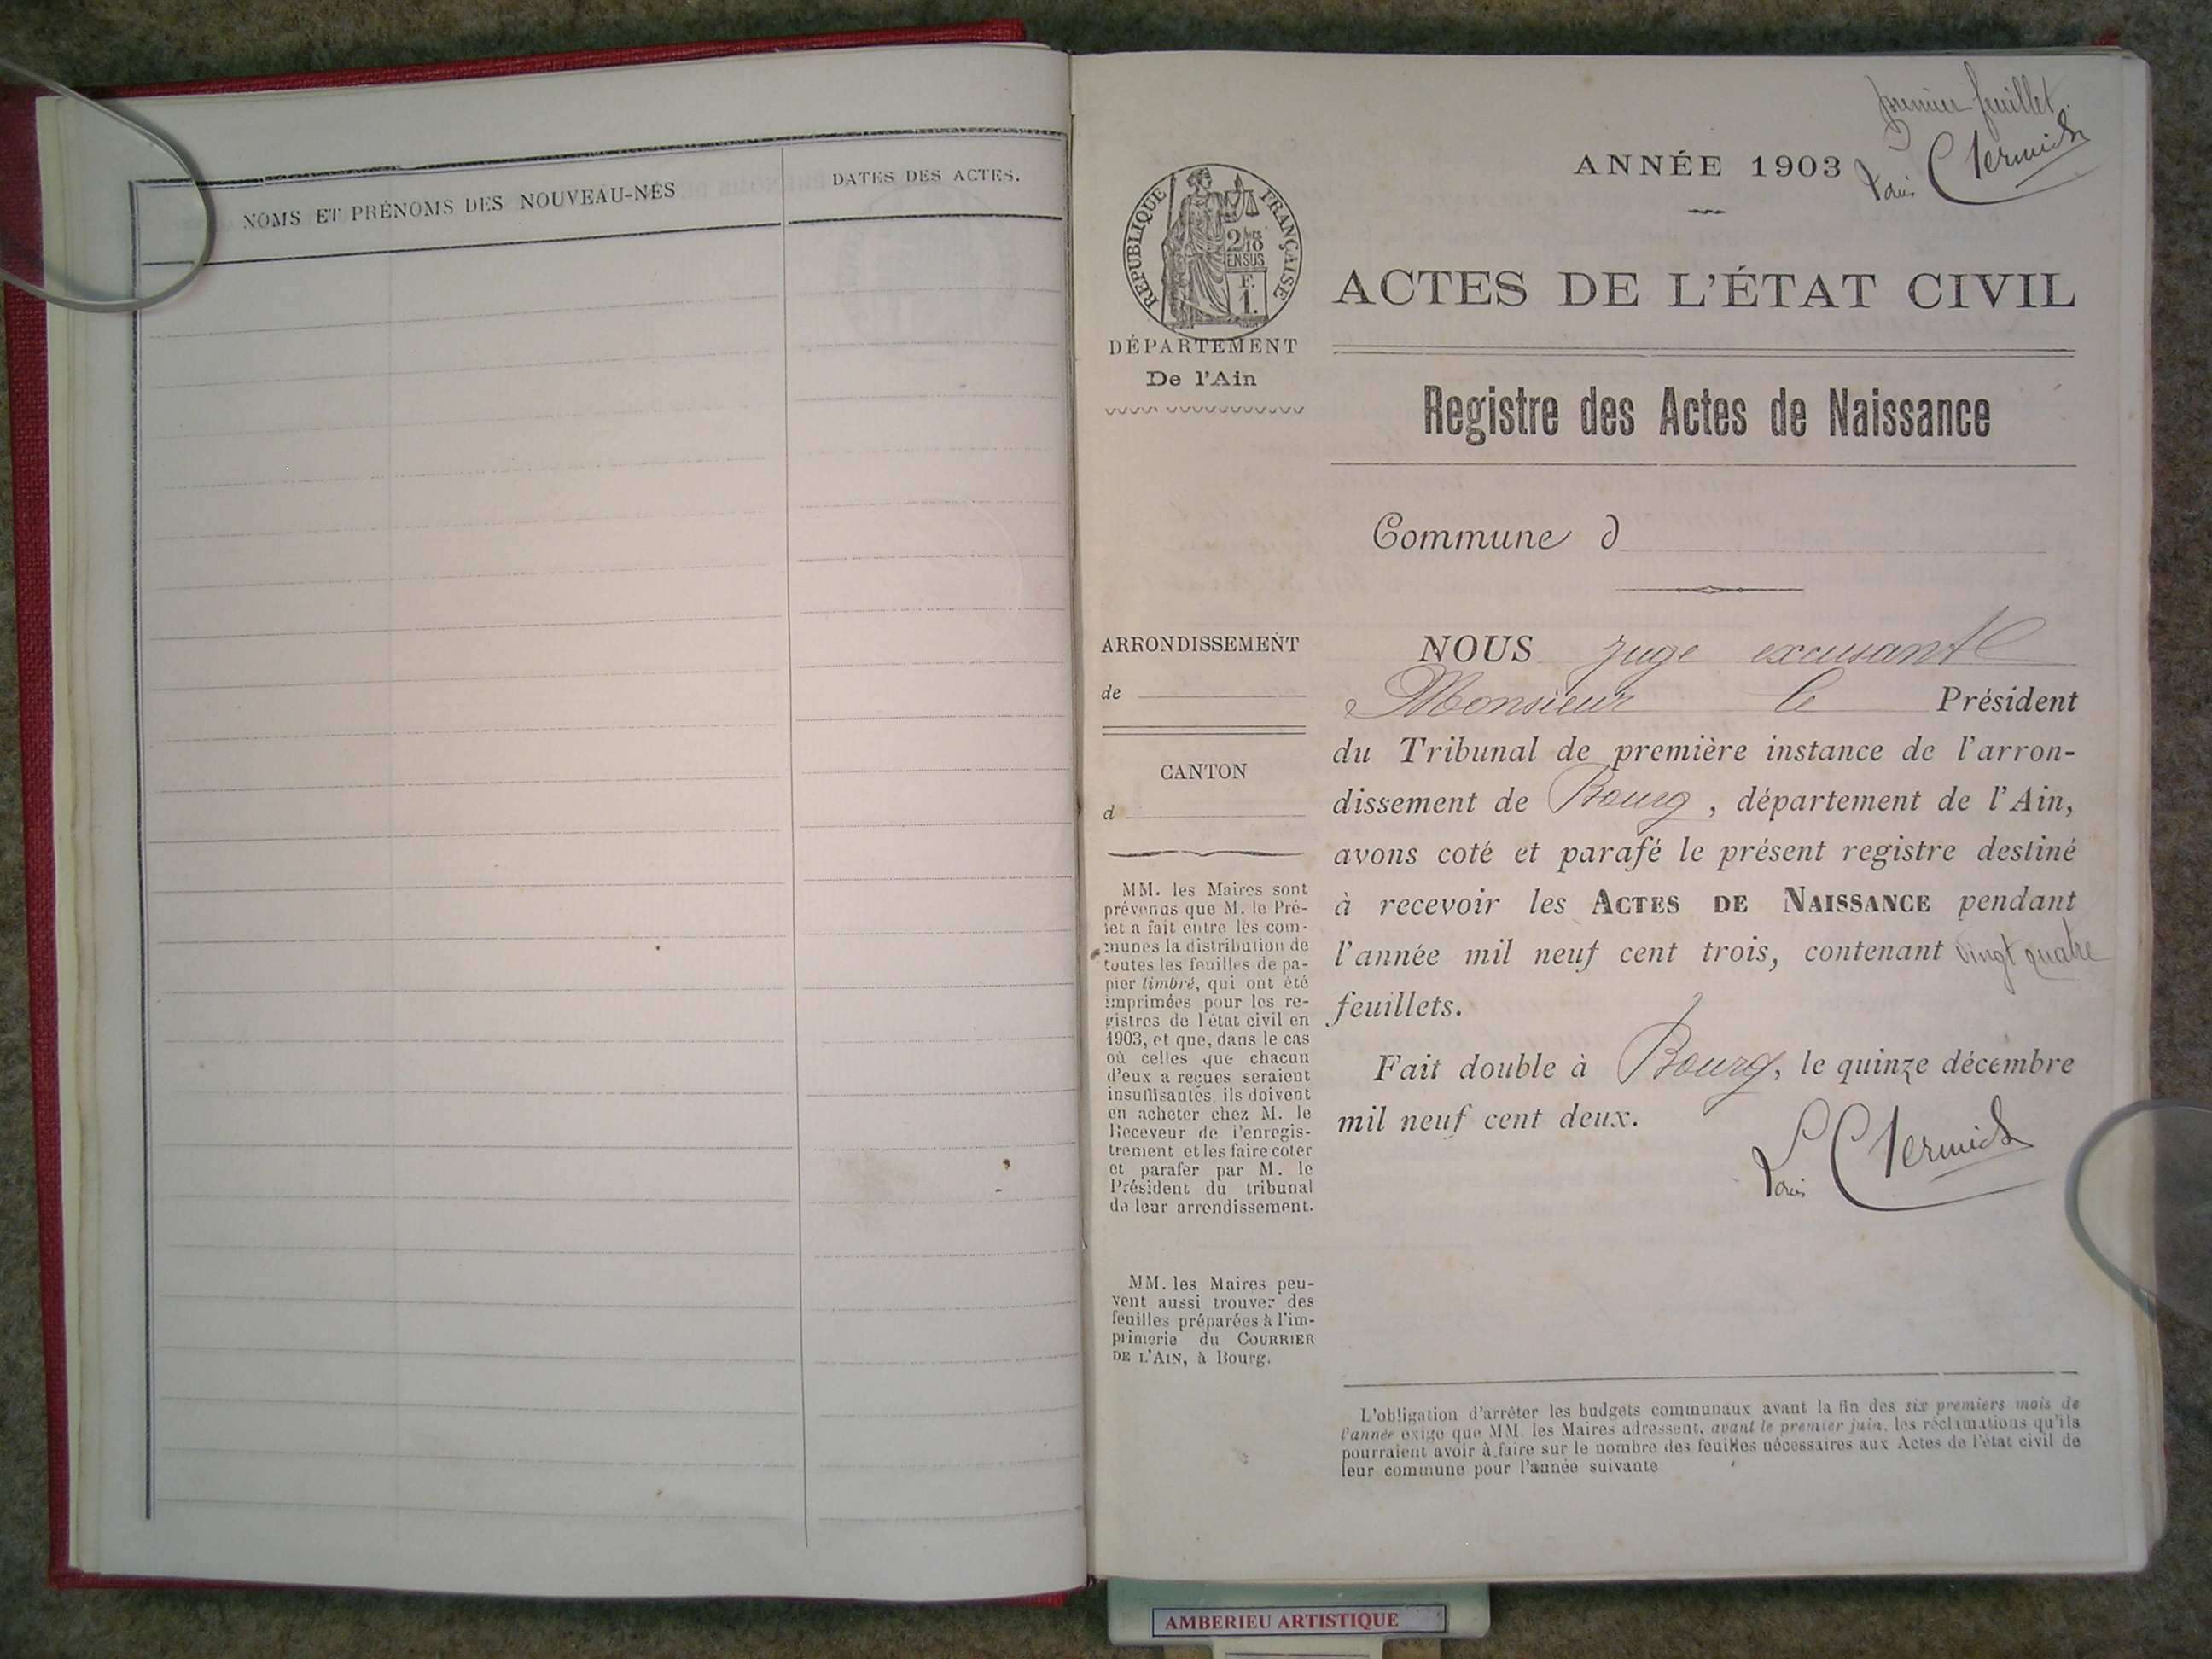 NOMS ET PRÉNOMS DES NOUVEAU-NÉS
DATES DES ACTES.
premier feuillet
Louis
ANNÉE 1903
RÉPUBLIQUE FRANÇAISE
2/10
EN SUS
F.
1.
DÉPARTEMENT
De l'Ain
ACTES DE L'ÉTAT CIVIL
Registre des Actes de Naissance
Commune d
ARRONDISSEMENT
de
CANTON
d
MM. les Maires sont
prévenus que M. le Pré-
fet a fait entre les com-
munes la distribution de
toutes les feuilles de pa-
pier timbré, qui ont été
imprimées pour les re-
gistres de l'état civil en
1903, et que, dans le cas
où celles que chacun
d'eux a reçues seraient
insuffisantes, ils doivent
en acheter chez M. le
Receveur de l'enregis-
trement et les faire coter
et parafer par M. le
Président du tribunal
de leur arrondissement.
MM. les Maires peu-
vent aussi trouver des
feuilles préparées à l'im-
primerie du COURRIER
DE L'AIN, à Bourg.
NOUS juge excusant
Monsieur le Président
du Tribunal de première instance de l'arron-
dissement de Bourg, département de l'Ain,
avons coté et parafé le présent registre destiné
à recevoir les ACTES DE NAISSANCE pendant
l'année mil neuf cent trois, contenant vingt quatre
feuillets.
Fait double à Bourg, le quinze décembre
mil neuf cent deux.
Louis
L'obligation d'arrêter les budgets communaux avant la fin des six premiers mois de
l'année exige que MM. les Maires adressent, avant le premier juin, les réclamations qu'ils
pourraient avoir à faire sur le nombre des feuilles nécessaires aux Actes de l'état civil de
leur commune pour l'année suivante
AMBERIEU ARTISTIQUE